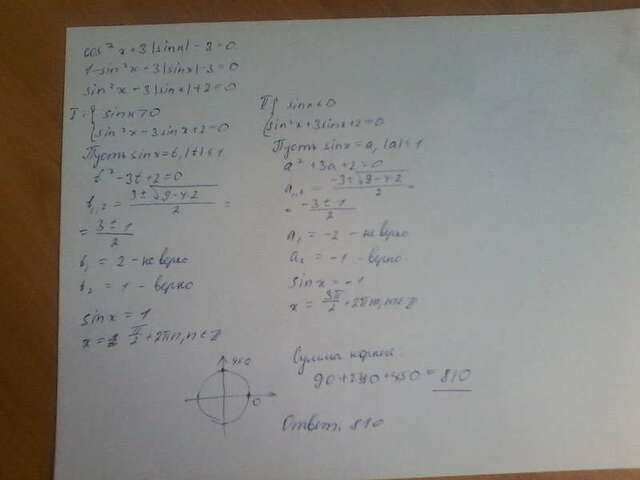 cos²x+3|sinx|-3=0
1-sin²x+3|sinx|-3=0
sin²x-3|sinx|+2=0
I. { sinx>0
sin²x-3sinx+2=0
Пусть sinx=t, |t|≤1
t²-3t+2=0
t₁,₂ = (3±√(9-4·2))/2 =
= (3±1)/2
t₁ = 2 - не верно
t₂ = 1 - верно
sinx = 1
x = π/2 + 2πn, n∈Z
II { sinx<0
sin²x+3sinx+2=0
Пусть sinx=a, |a|≤1
a²+3a+2=0
a₁,₂ = (-3±√(9-4·2))/2 =
= (-3±1)/2
a₁ = -2 - не верно
a₂ = -1 - верно.
sinx = -1
x = 3π/2 + 2πm, m∈Z
450
0
Сумма корней:
90+270+450=810
Ответ: 810